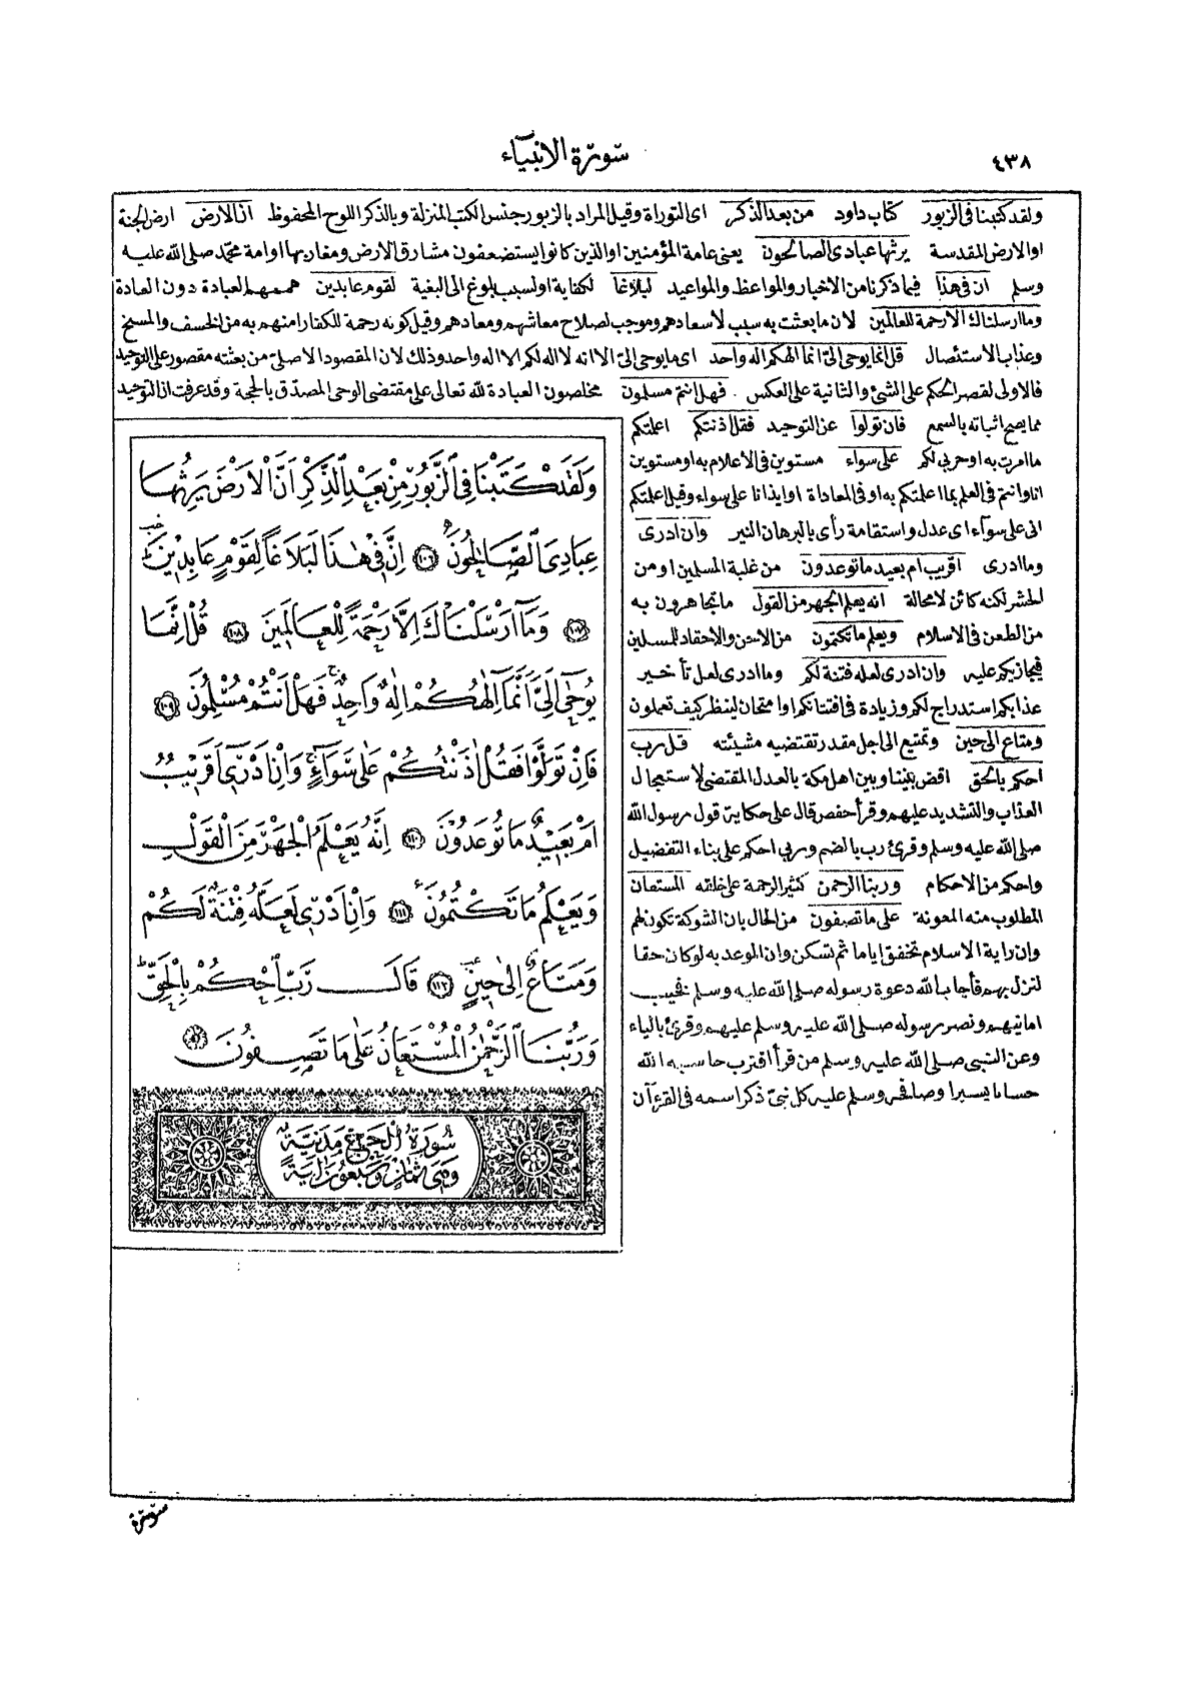 ٤٣٨
سورة الانبياء
ولقد كتبنا فى الزبور كتاب داود من بعد الذكر اى التوراة وقيل المراد بالزبور جنس الكتب المنزلة وبالذكر اللوح المحفوظ ان الارض ارض الجنة
او الارض المقدسة يرثها عبادى الصالحون يعنى عامة المؤمنين او الذين كانوا يستضعفون مشارق الارض ومغاربها او امة محمد صلى الله عليه
وسلم ان فى هذا فيما ذكرنا من الاخبار والمواعظ والمواعيد لبلاغا لكفاية او لسبب بلوغ الى البغية لقوم عابدين همهم العبادة دون العادة
وما ارسلناك الا رحمة للعالمين لان ما بعثت به سبب لاسعادهم وموجب لصلاح معاشهم ومعادهم وقيل كونه رحمة للكفار امنهم به من الخسف والمسخ
وعذاب الاستئصال قل انما يوحى الىّ انما الهكم اله واحد اى ما يوحى الىّ الا انه لا اله لكم الا اله واحد وذلك لان المقصود الاصلى من بعثته مقصور على التوحيد
فالاولى لقصر الحكم على الشئ والثانية على العكس . فهل انتم مسلمون مخلصون العبادة لله تعالى على مقتضى الوحى المصدق بالحجة وقد عرفت ان التوحيد
مما يصح اثباته بالسمع فان تولوا عن التوحيد فقل اذنتكم اعلمتكم
ما امرت به او حربى لكم على سواء مستوين فى الاعلام به او مستوين
انا وانتم فى العلم بما اعلمتكم به او فى المعاداة او ايذانا على سواء وقيل اعلمتكم
انى على سوآء اى عدل واستقامة رأى بالبرهان النير وان ادرى
وما ادرى اقريب ام بعيد ما توعدون من غلبة المسلمين او من
الحشر لكنه كائن لا محالة انه يعلم الجهر من القول ما تجاهرون به
من الطعن فى الاسلام ويعلم ما تكتمون من الاحن والاحقاد للمسلمين
فيجازيكم عليه وان ادرى لعله فتنة لكم وما ادرى لعل تأخير
عذابكم استدراج لكم وزيادة فى افتتانكم او امتحان لينظر كيف تعملون
ومتاع الى حين وتمتع الى اجل مقدر تقتضيه مشيئته قل رب
احكم بالحق اقض بيننا وبين اهل مكة بالعدل المقتضى لاستعجال
العذاب والتشديد عليهم وقرأ حفص قال على حكاية قول رسول الله
صلى الله عليه وسلم وقرئ رب بالضم وربى احكم على بناء التفضيل
واحكم من الاحكام وربنا الرحمن كثير الرحمة على خلقه المستعان
المطلوب منه المعونة على ما تصفون من الحال بان الشوكة تكون لهم
وان راية الاسلام تخفق اياما ثم تسكن وان الموعد به لو كان حقا
لنزل بهم فأجاب الله دعوة رسوله صلى الله عليه وسلم فخيب
امانيهم ونصر رسوله صلى الله عليه وسلم عليهم وقرئ بالياء
وعن النبى صلى الله عليه وسلم من قرأ اقترب حاسبه الله
حسابا يسيرا وصافحه وسلم عليه كل نبىّ ذكر اسمه فى القرءآن
وَلَقَدْ كَتَبْنَا فِى الزَّبُورِ مِنْ بَعْدِ الذِّكْرِ اَنَّ الْاَرْضَ يَرِثُهَا
عِبَادِىَ الصَّالِحُونَ ﴿١٠٦﴾ اِنَّ فِى هٰذَا لَبَلَاغاً لِقَوْمٍ عَابِدِينَ
﴿١٠٧﴾ وَمَا اَرْسَلْنَاكَ اِلَّا رَحْمَةً لِلْعَالَمِينَ ﴿١٠٨﴾ قُلْ اِنَّمَا
يُوحٰى اِلَىَّ اَنَّمَا اِلٰهُكُمْ اِلٰهٌ وَاحِدٌ فَهَلْ اَنْتُمْ مُسْلِمُونَ ﴿١٠٩﴾
فَاِنْ تَوَلَّوْا فَقُلْ اٰذَنْتُكُمْ عَلٰى سَوَاءٍ وَاِنْ اَدْرِى اَقَرِيبٌ
اَمْ بَعِيدٌ مَا تُوعَدُونَ ﴿١١٠﴾ اِنَّهُ يَعْلَمُ الْجَهْرَ مِنَ الْقَوْلِ
وَيَعْلَمُ مَا تَكْتُمُونَ ﴿١١١﴾ وَاِنْ اَدْرِى لَعَلَّهُ فِتْنَةٌ لَكُمْ
وَمَتَاعٌ اِلٰى حِينٍ ﴿١١٢﴾ قَالَ رَبِّ احْكُمْ بِالْحَقِّ
وَرَبُّنَا الرَّحْمٰنُ الْمُسْتَعَانُ عَلٰى مَا تَصِفُونَ
سُورَةُ الْحَجِّ مَدَنِيَّةٌ
وَهِىَ ثَمَانٍ وَسَبْعُونَ اٰيَةً
سورة